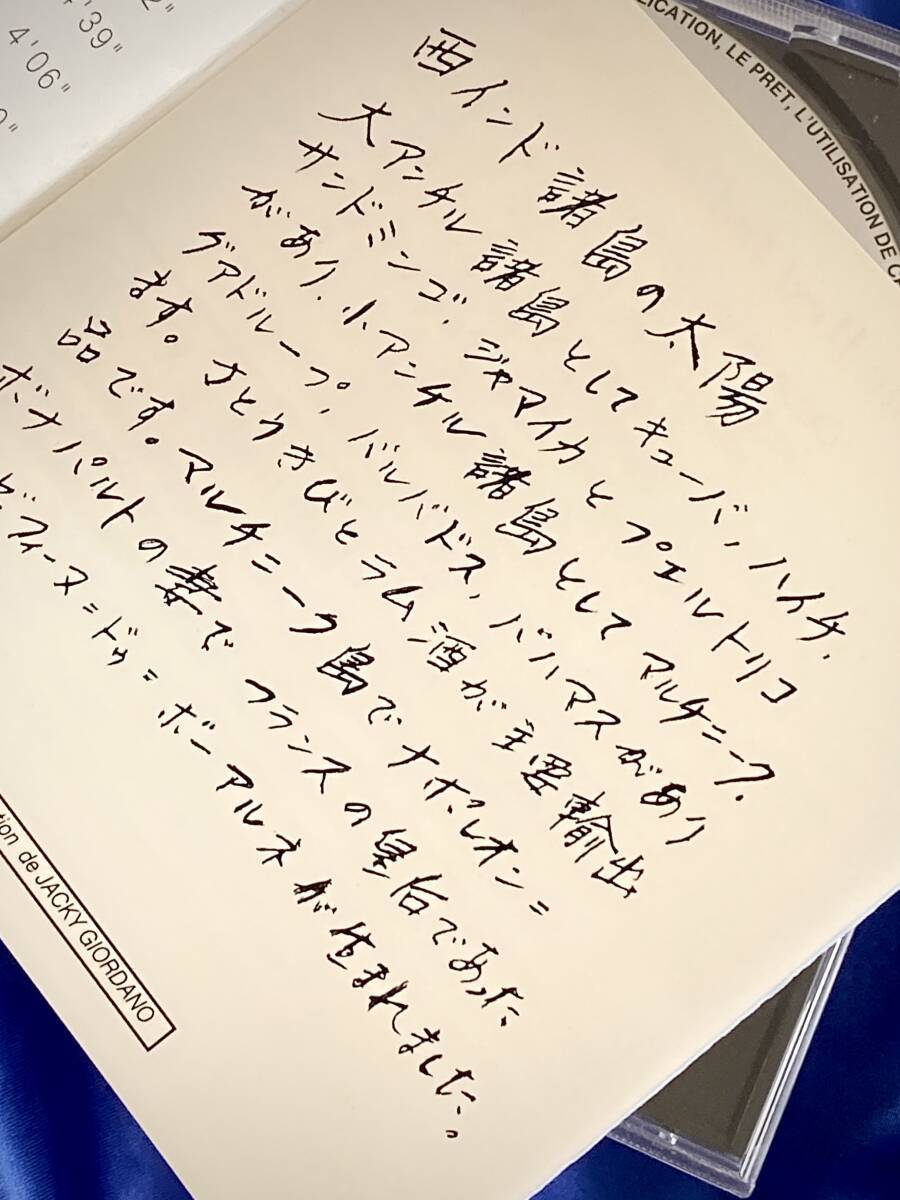 2"
'39"
4'06"
西インド諸島の太陽
大アンチル諸島としてキューバ、ハイチ、
サンドミンゴ、ジャマイカとプエルトリコ
があり、小アンチル諸島としてマルチニーク、
グアドループ、バルバドス、バハマスがあり
ます。さとうきびとラム酒が主要輸出
品です。マルチニーク島でナポレオン=
ボナパルトの妻でフランスの皇后であった
ゼフィーヌ=ドゥ=ボーアルネが生まれました。
tion de JACKY GIORDANO
LICATION, LE PRET, L'UTILISATION DE C